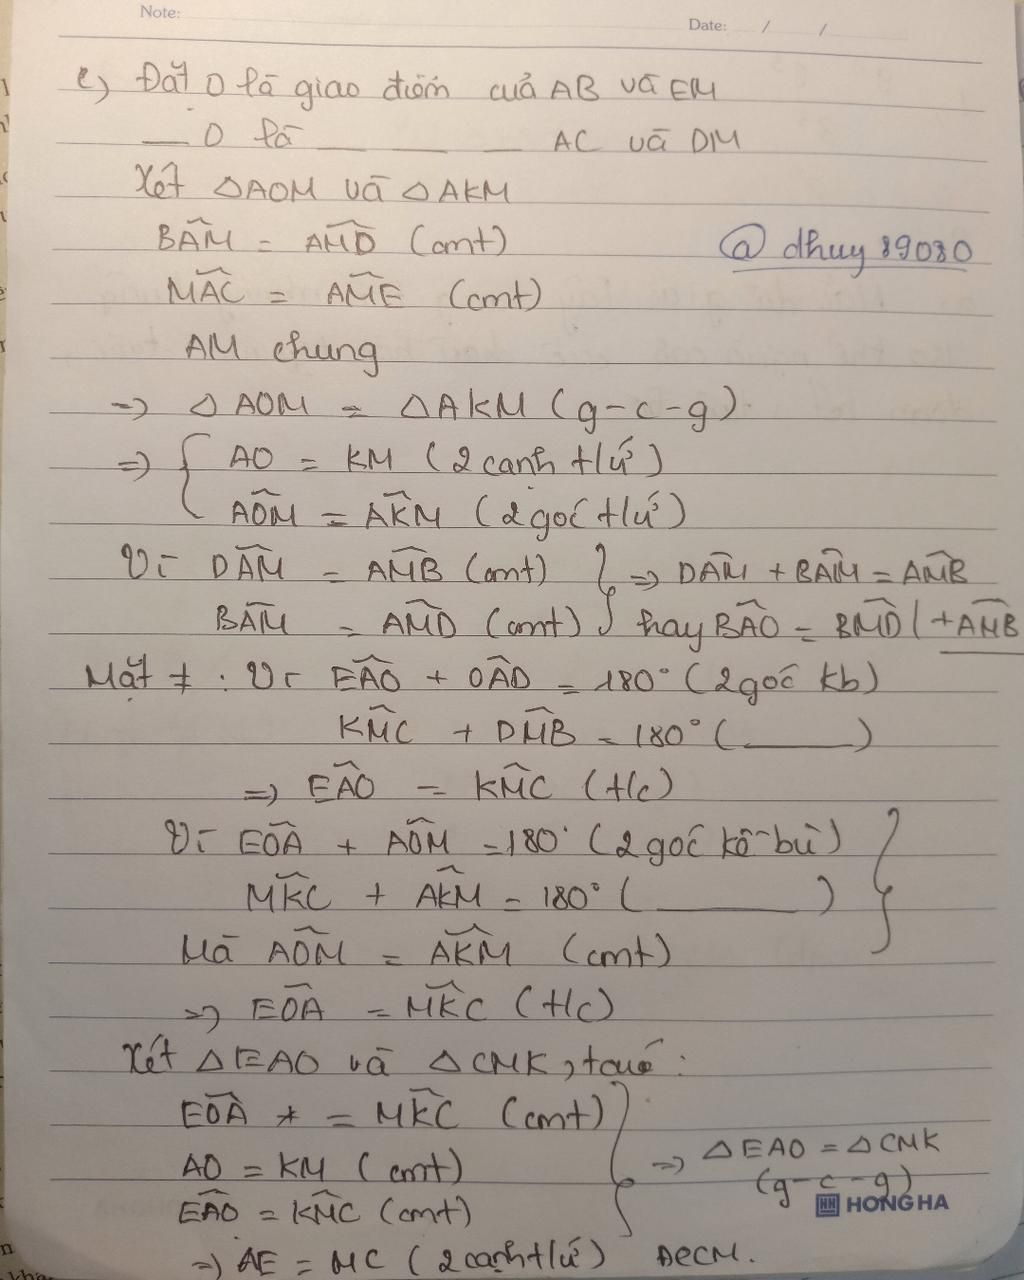 Note:
Date: / /
c) Đặt O là giao điểm của AB và EM
__ O là __ __ __ AC và DM
Xét △AOM và △AKM
BAM = AMD (cmt)
@dhuy89080
MAC = AME (cmt)
AM chung
=> △AOM = △AKM (g-c-g)
=> { AO = KM (2 cạnh t/ứ)
AOM = AKM (2 góc t/ứ)
Vì DAM = AMB (cmt) } => DAM + BAM = AMB
BAM = AMD (cmt) } hay BAO = BMD | + AMB
Mặt ≠ : Vì EAO + OAD = 180° (2 góc kb)
KMC + DMB = 180° (____)
=> EAO = KMC (t/c)
Vì EOA + AOM = 180° (2 góc kề bù) }
MKC + AKM = 180° (____)
Mà AOM = AKM (cmt)
=> EOA = MKC (t/c)
Xét △EAO và △CMK, ta có :
EOA = MKC (cmt) }
AO = KM (cmt) => △EAO = △CMK
EAO = KMC (cmt) (g-c-g)
HONG HA
=> AE = MC (2 cạnh t/ứ) ĐPCM.